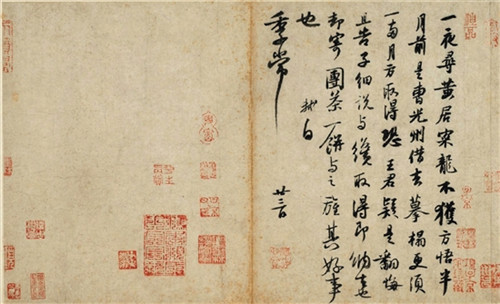 一夜尋黄居寀龍不獲方悟半
月前是曹光州借去摹搨更須
一兩月方取得恐王君疑是翻悔
且告子細說與纔取得即納去也
却寄團茶一餅與之旌其好事
也 軾白
季常 廿三日